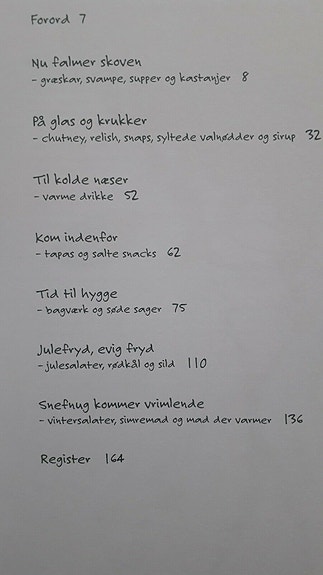 Forord 7
Nu falmer skoven
- græskar, svampe, supper og kastanjer 8
På glas og krukker
- chutney, relish, snaps, syltede valnødder og sirup 32
Til kolde næser
- varme drikke 52
Kom indenfor
- tapas og salte snacks 62
Tid til hygge
- bagværk og søde sager 75
Julefryd, evig fryd
- julesalater, rødkål og sild 110
Snefnug kommer vrimlende
- vintersalater, simremad og mad der varmer 136
Register 164